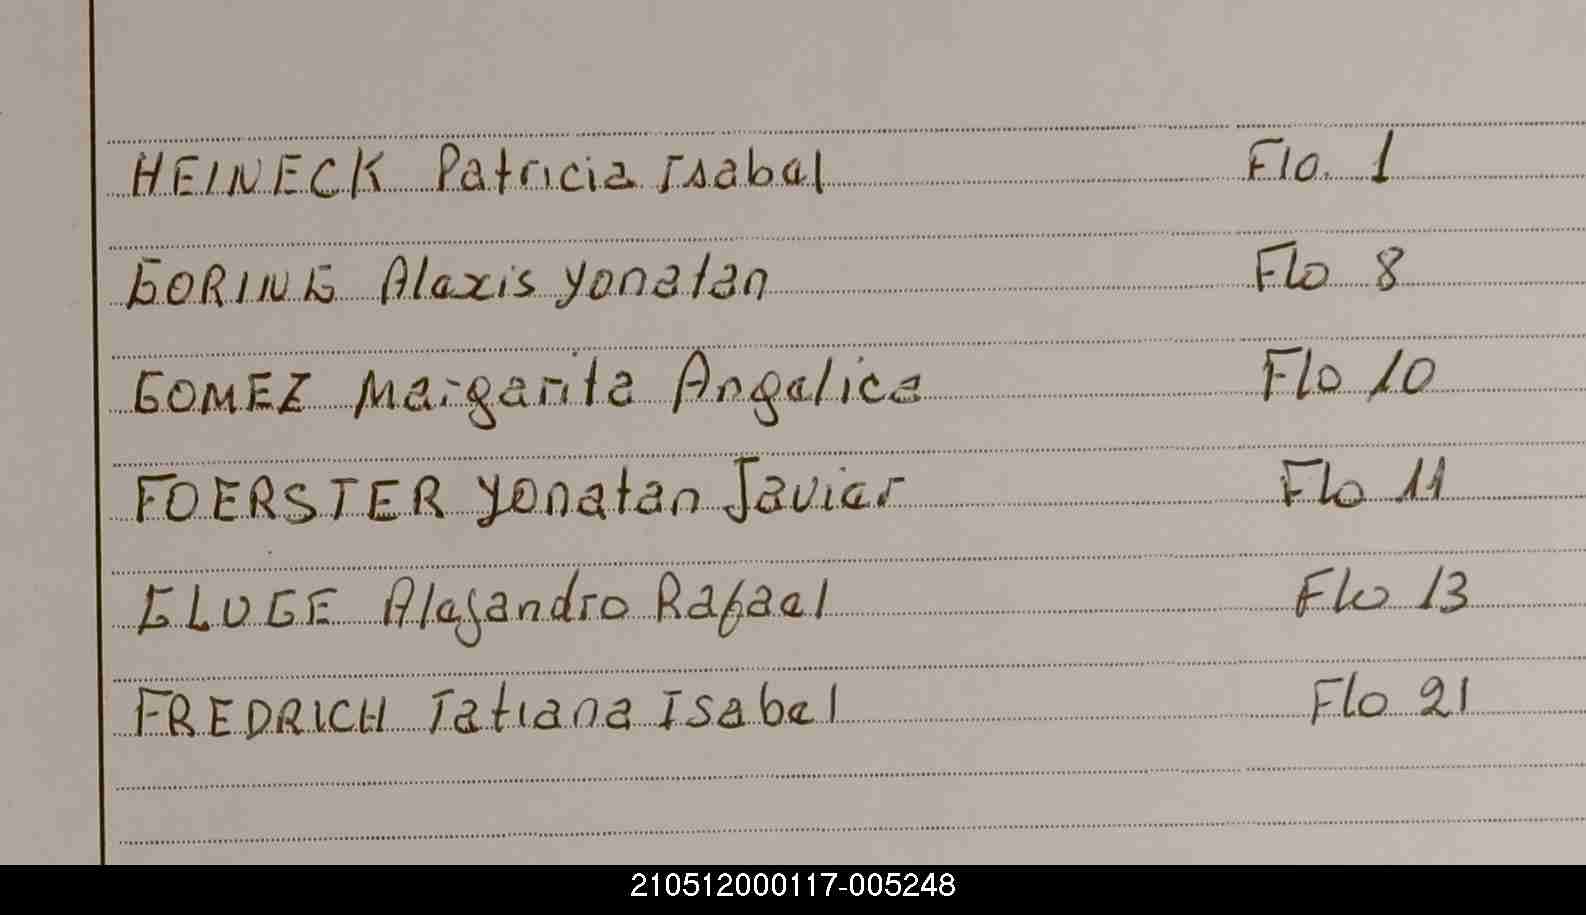 HEINECK Patricia Isabel Flo. 1
GORING Alexis Yonatan Flo 8
GOMEZ Margarita Angelica Flo 10
FOERSTER Yonatan Javier Flo 11
GLUGE Alejandro Rafael Flo 13
FREDRICH Tatiana Isabel Flo 21
210512000117-005248